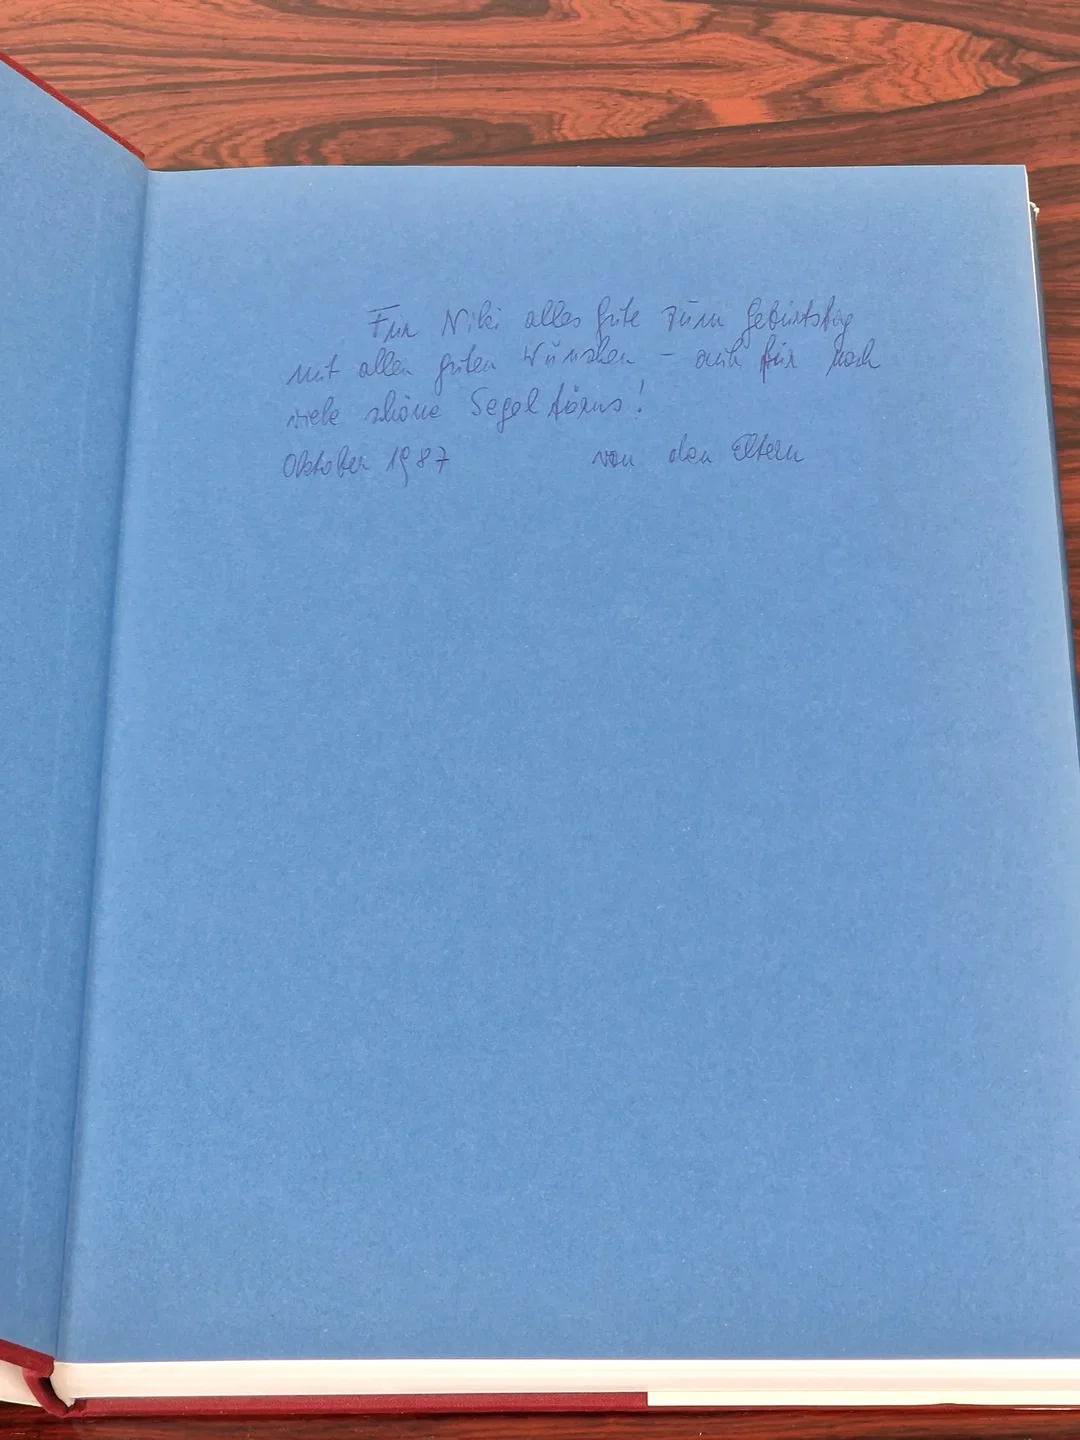 Für Niki alles Gute zum Geburtstag
mit allen guten Wünschen – auch für noch
viele schöne Segeltörns!
Oktober 1987 von den Eltern